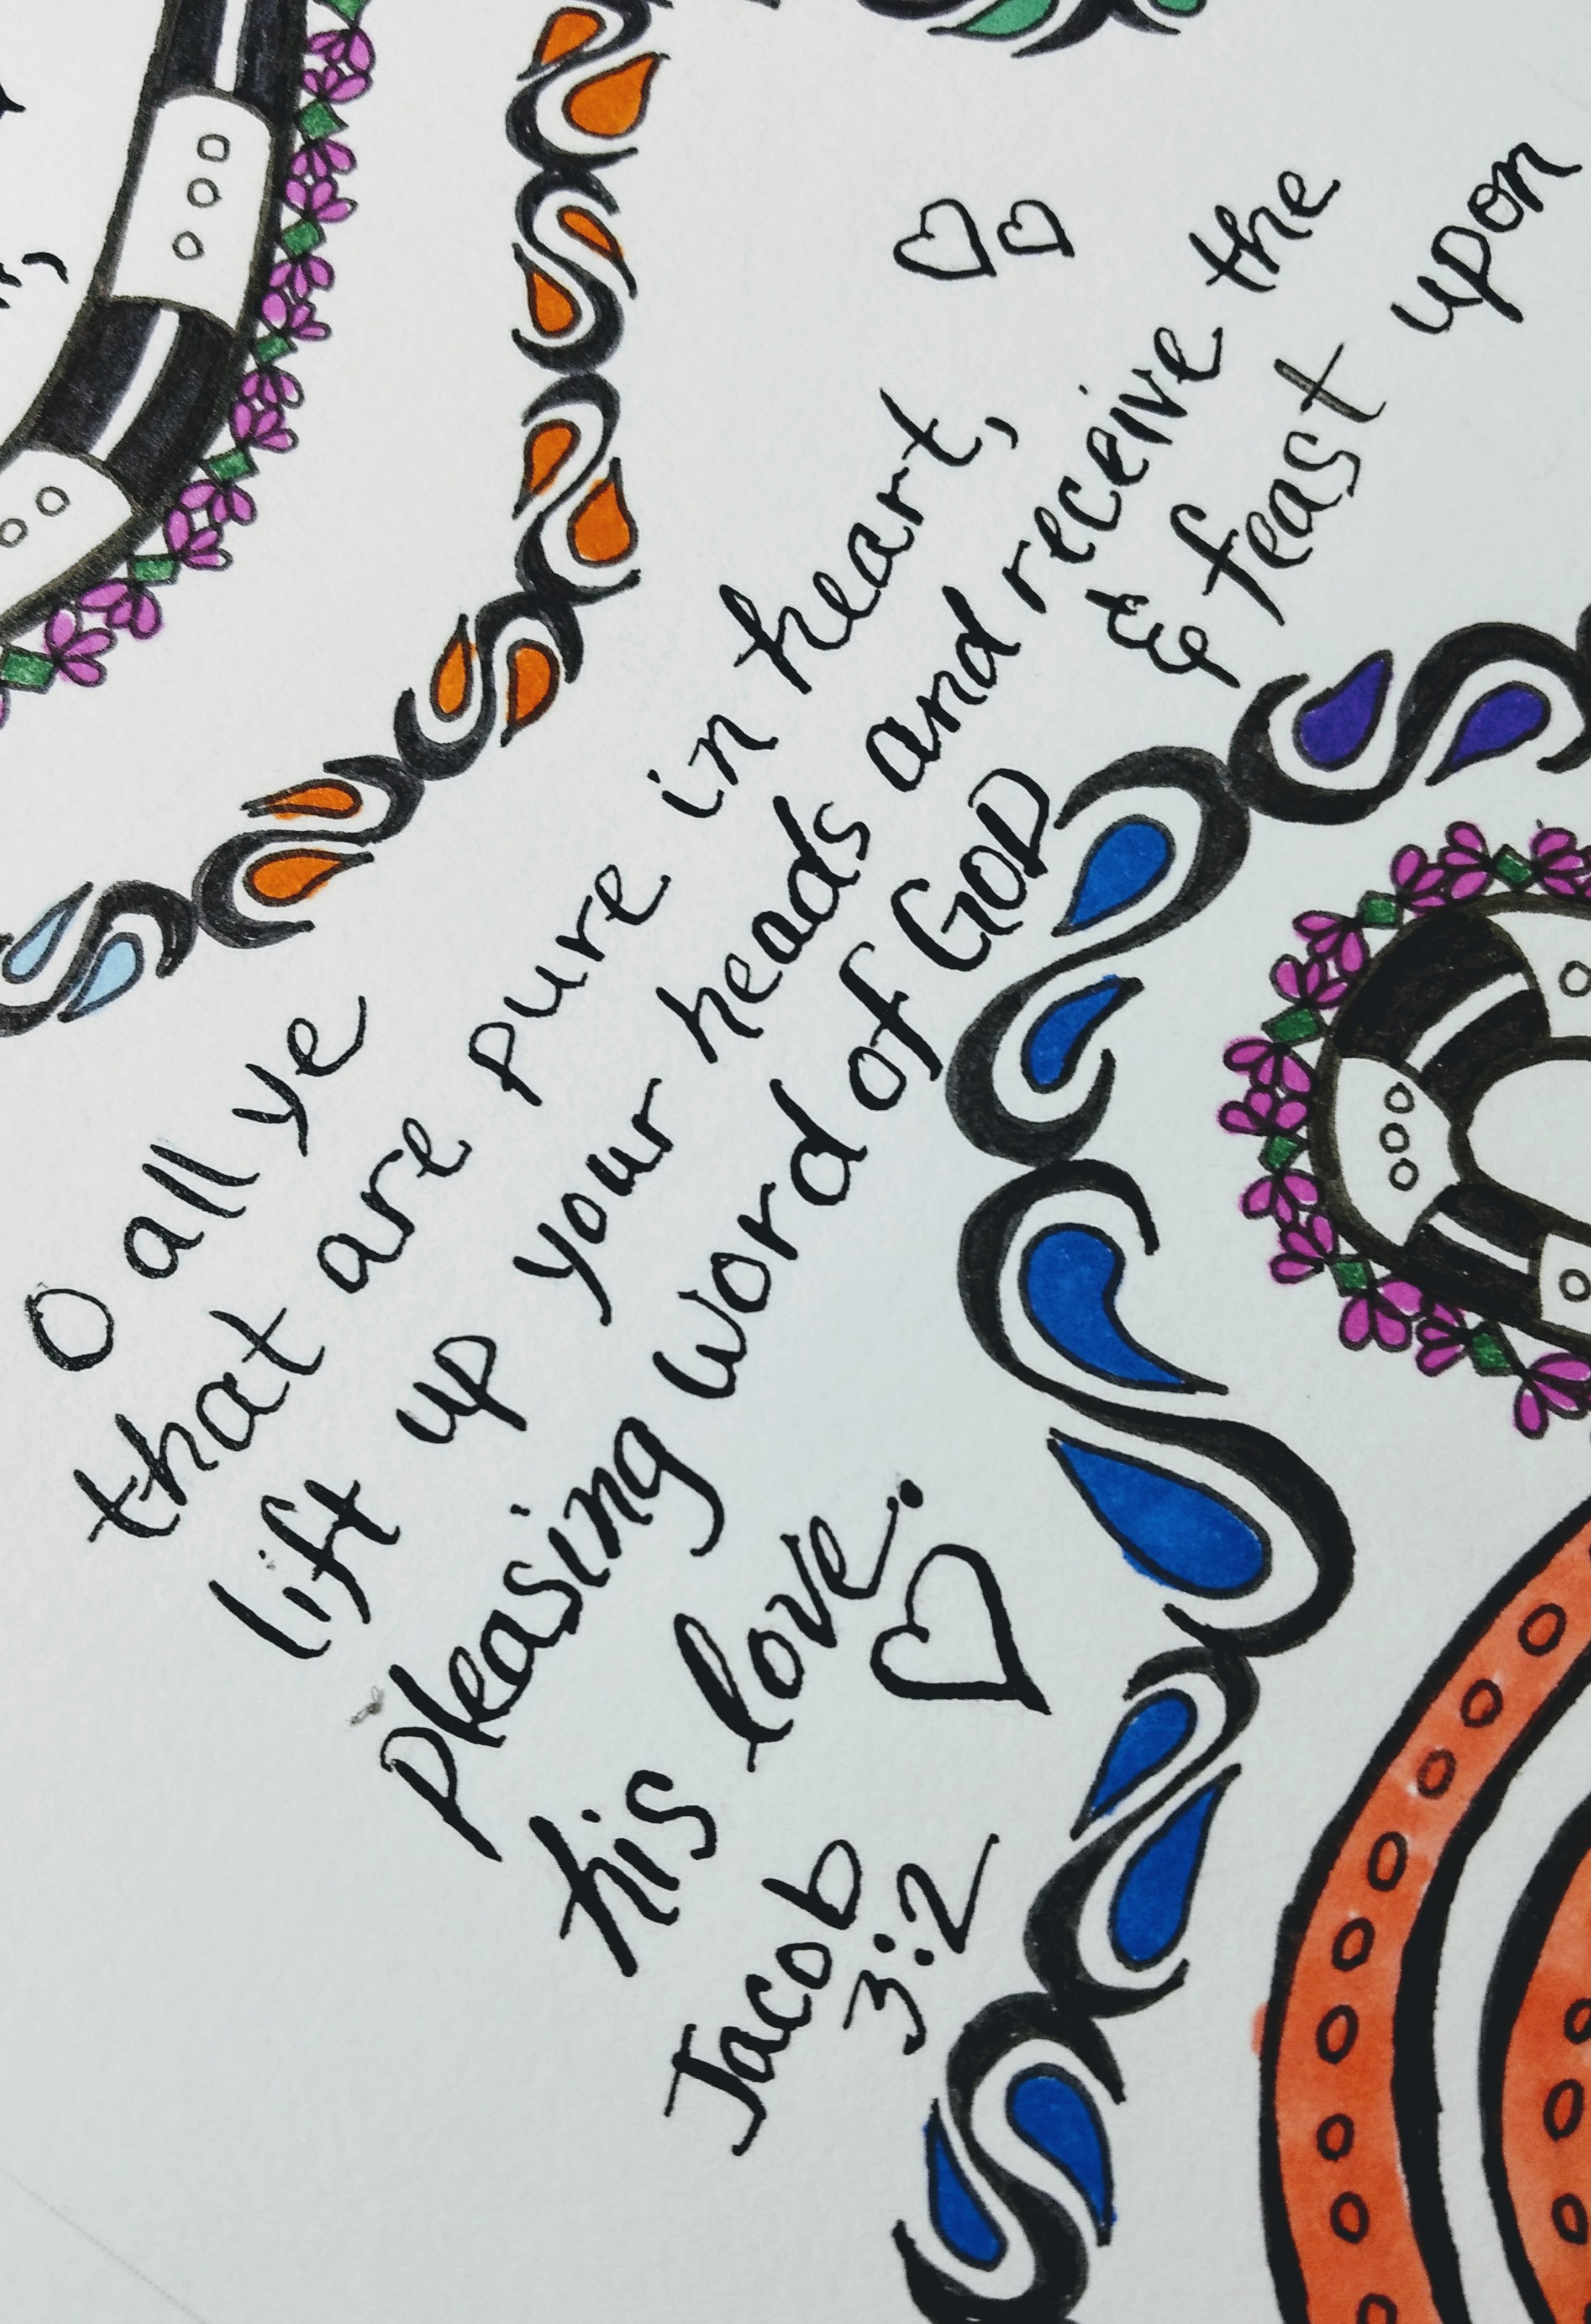 O all ye
that are pure in heart,
lift up your heads and receive the
pleasing word of GOD & feast upon
his love.
Jacob
3:2